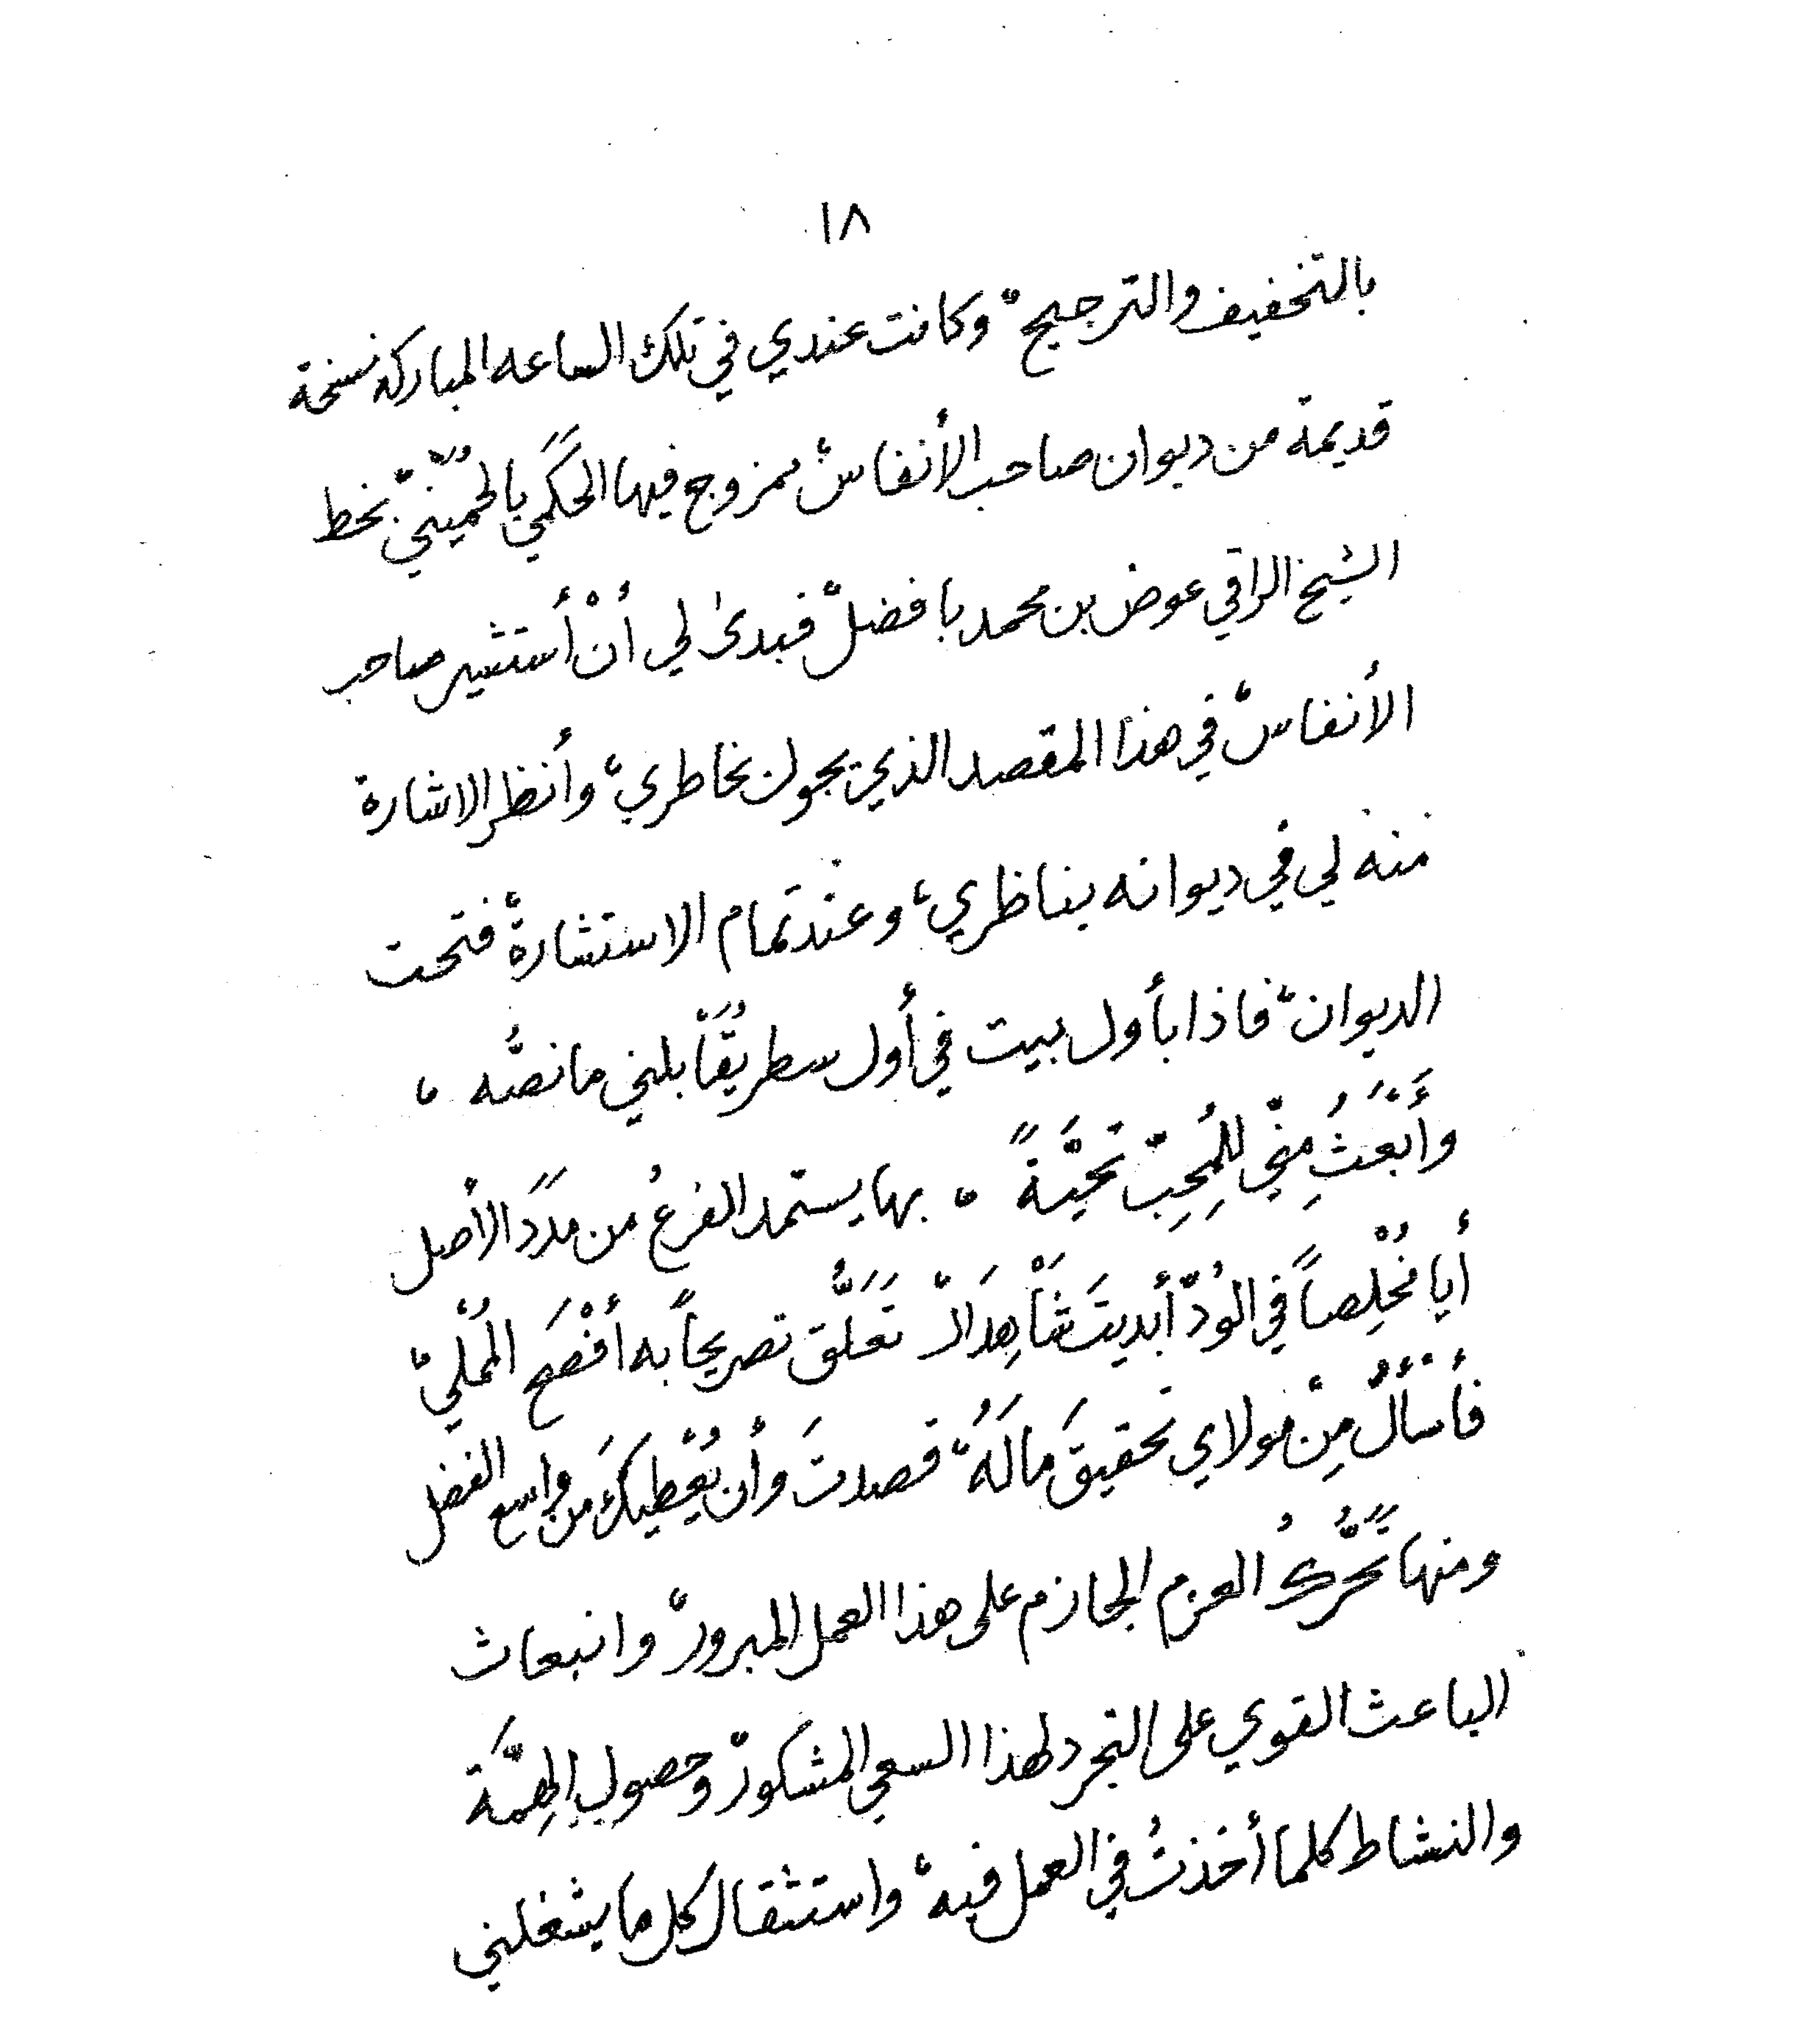 ١٨
بالتخفيف والترجيح، وكانت عندي في تلك الساعه المباركه نسخة
قديمة من ديوان صاحب الأنفاس، ممزوج فيها الحَكَمي بالحُمَيْني، بخط
الشيخ الراقي عوض بن محمد بافضل، فبدىٰ لي أنْ أستشير صاحب
الأنفاس، في هذا المقصد الذي يجول بخاطري، وأنظر الاشارة
منه لي في ديوانه بناظري، وعند تمام الاستشارة، فتحت
الديوان، فاذا بأول بيت في أول سطر يُقَابلني مانصُّه ،
وأَبْعَثُ مِنِّي للمُحِبِّ تحيَّةً ، بها يستمد الفرعُ من مَدَدِ الأصل
أيا مُخْلِصاً في الوُدِّ أبديتَ شَاهِداً، تَعَلَّق تصريحاً به أفْصَحَ المُمْلي،
فأسْألُ مِنْ مولاي تحقيقَ مَا لَهُ، قصدتَ وأن يُعْطيكَ من واسع الفضل
ومنها تَحَرُّكُ العزم الجازم على هذا العمل المبرور، وانبعاث
الباعث القوي على التجرد لهذا السعي المشكور، وحصول الهِمَّة
والنشاط كلما أخذتُ في العمل فيه، واستثقال كل ما يشغلني